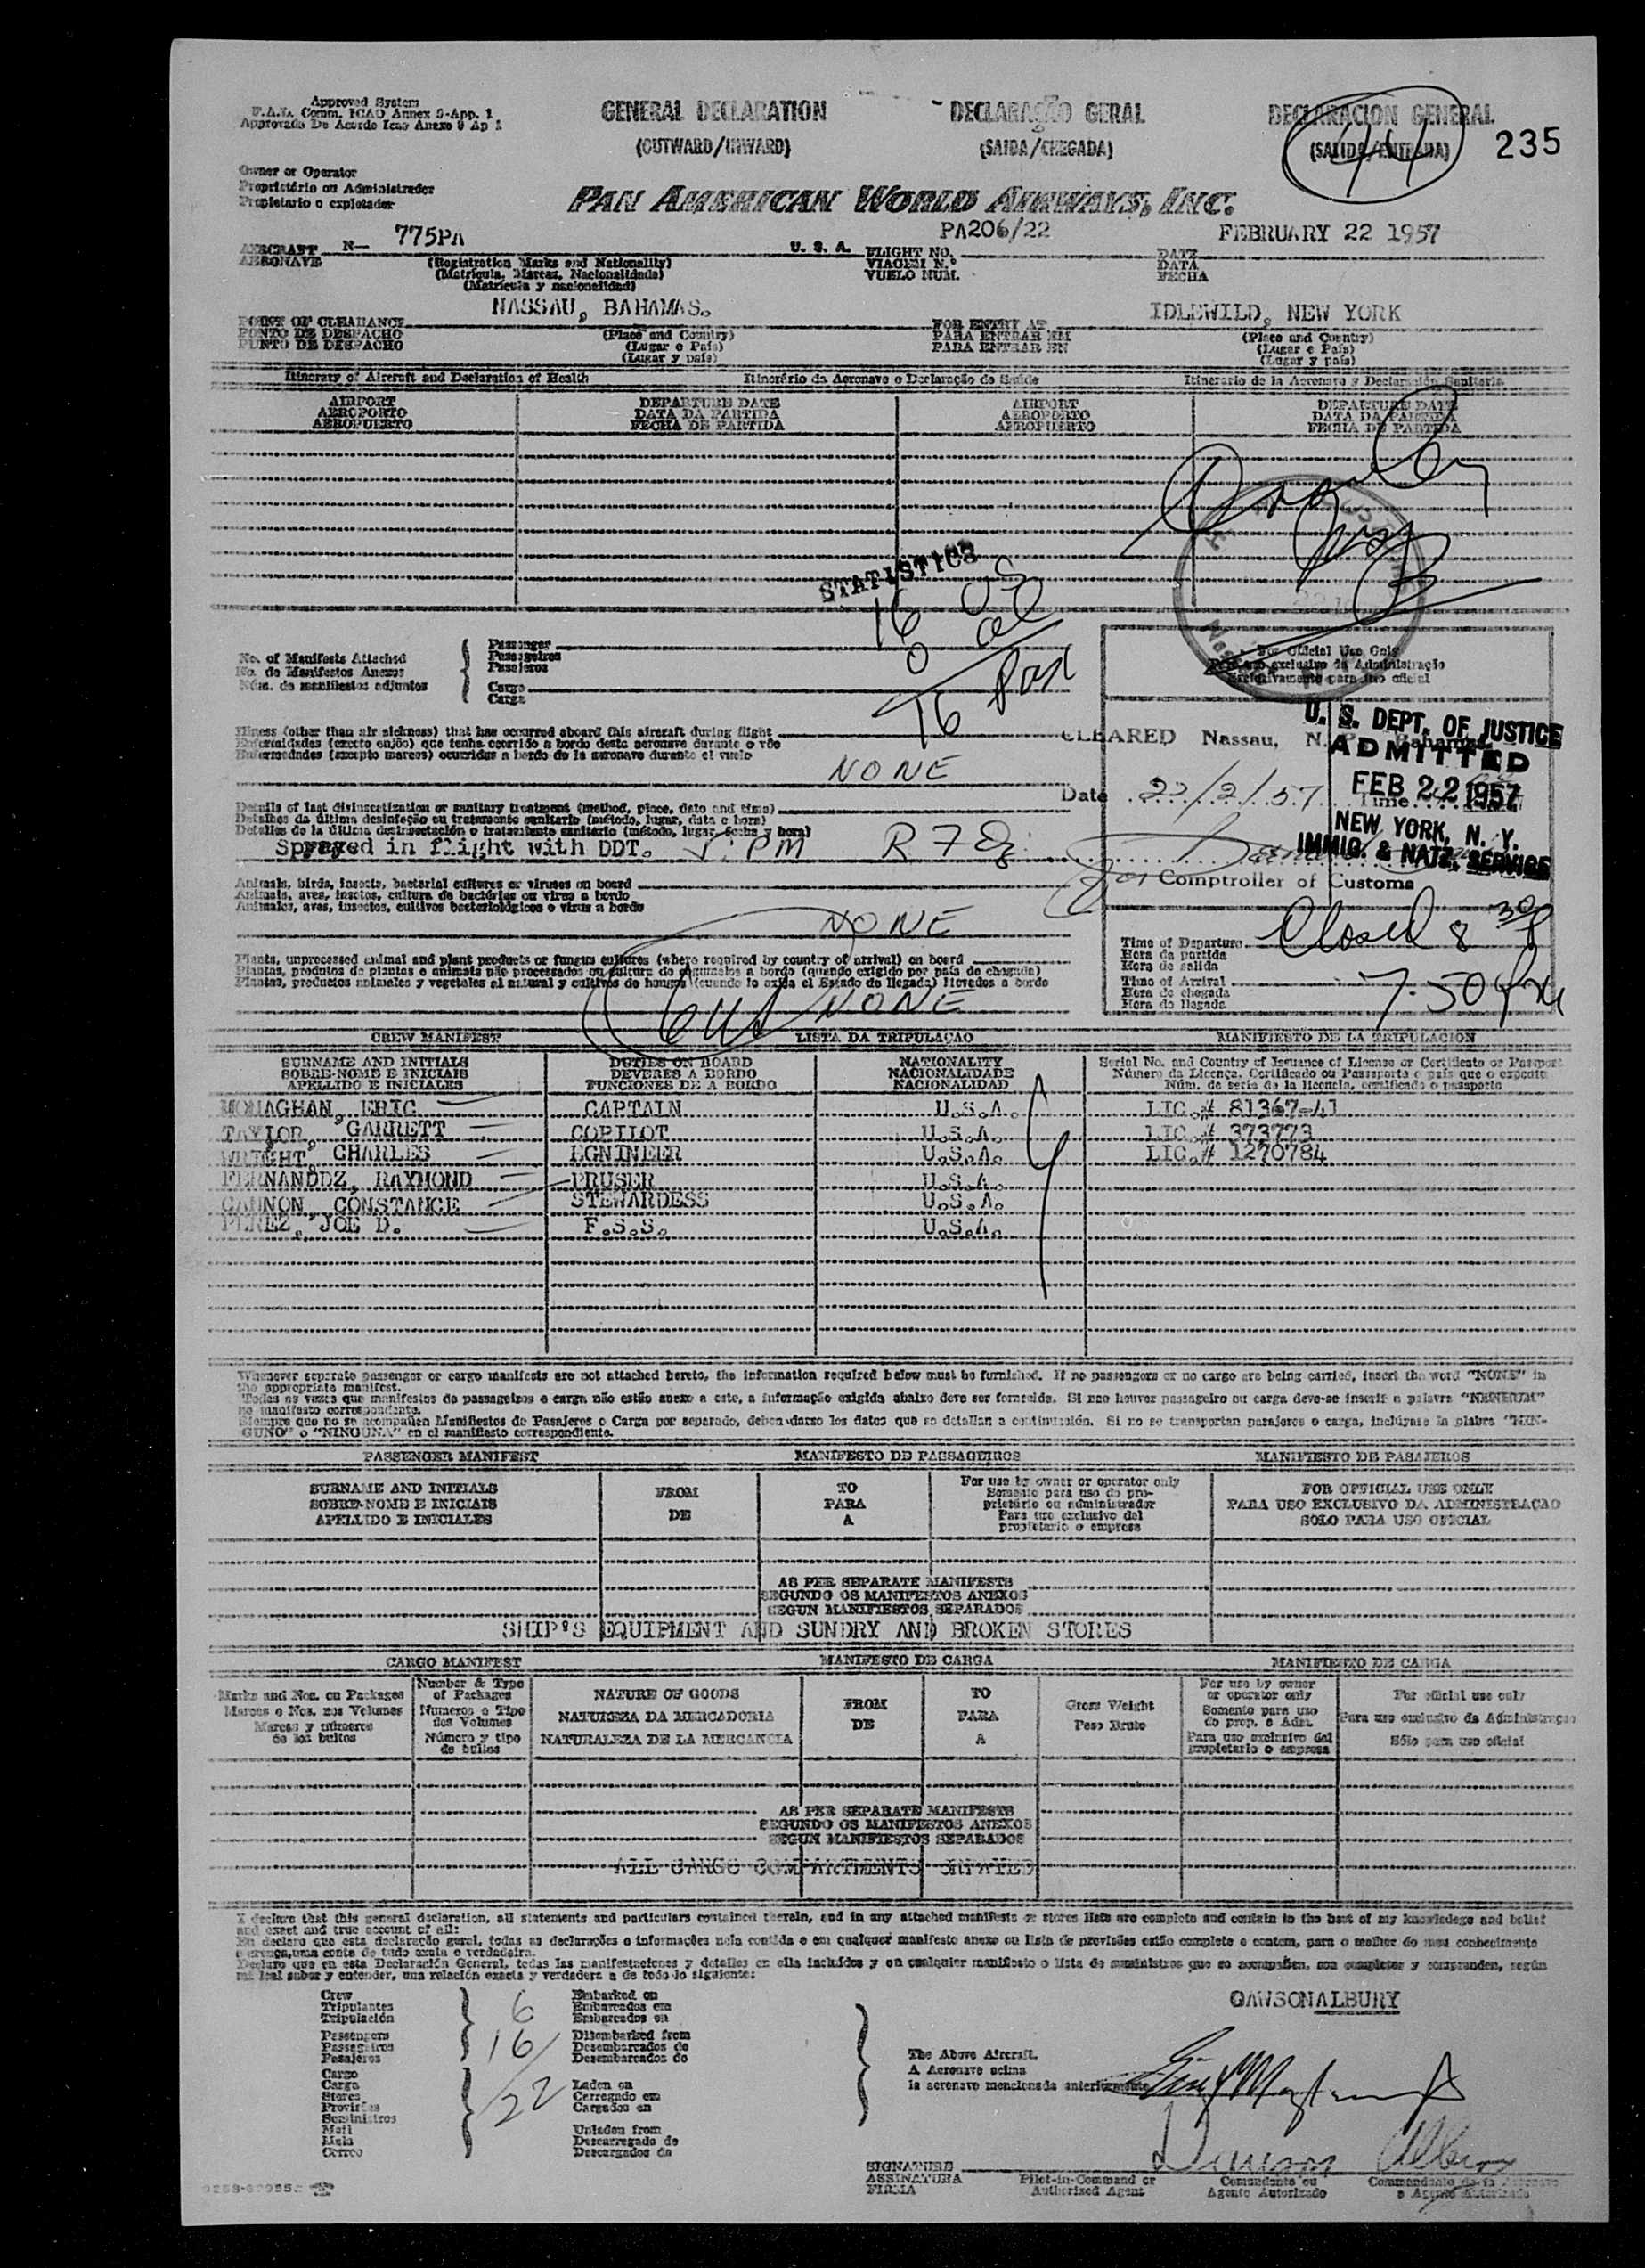 Approved System
F.A.L. Comm. ICAO Annex 9-App. 1
Approvado De Acordo Icao Anexo 9 Ap 1
GENERAL DECLARATION
(OUTWARD/INWARD)
DECLARAÇÃO GERAL
(SAIDA/CHEGADA)
DECLARACION GENERAL
(SALIDA/ENTRADA)
44
235
Owner or Operator
Proprietário ou Administrador
Propietario o explotador
PAN AMERICAN WORLD AIRWAYS, INC.
AIRCRAFT N— 775PA U. S. A.
AERONAVE
(Registration Marks and Nationality)
(Matrícula, Marcas, Nacionalidade)
(Matrícula y nacionalidad)
FLIGHT NO. PA206/22
VIAGEM N.º
VUELO NUM.
DATE FEBRUARY 22 1957
DATA
FECHA
POINT OF CLEARANCE NASSAU, BAHAMAS.
PONTO DE DESPACHO
PUNTO DE DESPACHO
(Place and Country)
(Lugar e País)
(Lugar y país)
FOR ENTRY AT IDLEWILD, NEW YORK
PARA ENTRAR EM
PARA ENTRAR EN
(Place and Country)
(Lugar e País)
(Lugar y país)
Itinerary of Aircraft and Declaration of Health
Itinerário da Aeronave e Declaração de Saúde
Itinerario de la Aeronave y Declaración Sanitaria
AIRPORT
AEROPORTO
AEROPUERTO
DEPARTURE DATE
DATA DA PARTIDA
FECHA DE PARTIDA
AIRPORT
AEROPORTO
AEROPUERTO
DEPARTURE DATE
DATA DA PARTIDA
FECHA DE PARTIDA
STATISTICS
16 US
0 al
16 Pax
No. of Manifests Attached
No. de Manifestos Anexos
Núm. de manifiestos adjuntos
Passenger
Passageiros
Pasajeros
Cargo
Carga
For Official Use Only
Para uso exclusivo da Administração
Exclusivamente para uso oficial
Illness (other than air sickness) that has occurred aboard this aircraft during flight
Enfermidades (exceto enjôo) que tenha ocorrido a bordo desta aeronave durante o vôo
Enfermedades (excepto mareos) ocurridas a bordo de la aeronave durante el vuelo
NONE
CLEARED Nassau, N. P. Bahamas
Date 22/2/57 Time
Comptroller of Customs
U. S. DEPT. OF JUSTICE
ADMITTED
FEB 22 1957
NEW YORK, N. Y.
IMMIG. & NATZ. SERVICE
Details of last disinsectization or sanitary treatment (method, place, date and time)
Detalhes da última desinfeção ou tratamento sanitario (método, lugar, data e hora)
Detalles de la última desinsectación o tratamiento sanitario (método, lugar, fecha y hora)
Sprayed in flight with DDT.
Animals, birds, insects, bacterial cultures or viruses on board
Animais, aves, insetos, cultura de bactérias ou virus a bordo
Animales, aves, insectos, cultivos bacteriológicos o virus a bordo
NONE
Plants, unprocessed animal and plant products or fungus cultures (where required by country of arrival) on board
Plantas, produtos de plantas e animais não processados ou cultura de cogumelos a bordo (quando exigido por país de chegada)
Plantas, productos animales y vegetales al natural y cultivos de hongos (cuando lo exija el Estado de llegada) llevados a bordo
NONE
Time of Departure Closed 8 30 P
Hora da partida
Hora de salida
Time of Arrival 7.50 PM
Hora de chegada
Hora de llegada
CREW MANIFEST
LISTA DA TRIPULAÇAO
MANIFIESTO DE LA TRIPULACION
SURNAME AND INITIALS
SOBRE-NOME E INICIAIS
APELLIDO E INICIALES
DUTIES ON BOARD
DEVERES A BORDO
FUNCIONES DE A BORDO
NATIONALITY
NACIONALIDADE
NACIONALIDAD
Serial No. and Country of Issuance of License or Certificate or Passport
Número da Licença, Certificado ou Passaporte e país que o expediu
Núm. de serie de la licencia, certificado o pasaporte
MONAGHAN, ERIC CAPTAIN U.S.A. LIC.# 81367-41
TAYLOR, GARRETT COPILOT U.S.A. LIC.# 373773
WRIGHT, CHARLES EGNINEER U.S.A. LIC.# 1270784
FERNANDDZ, RAYMOND PRUSER U.S.A.
CANNON, CONSTANCE STEWARDESS U.S.A.
PEREZ, JOE D. F.S.S. U.S.A.
Whenever separate passenger or cargo manifests are not attached hereto, the information required below must be furnished. If no passengers or no cargo are being carried, insert the word "NONE" in
the appropriate manifest.
Todas as vezes que manifestos de passageiros e carga não estão anexo a este, a informação exigida abaixo deve ser fornecida. Si nao houver passageiro ou carga deve-se inserir a palavra "NENHUM"
no manifesto correspondente.
Siempre que no se acompañen Manifiestos de Pasajeros o Carga por separado, deben darse los datos que se detallan a continuación. Si no se transportan pasajeros o carga, inclúyase la plabra "NIN-
GUNO" o "NINGUNA" en el manifiesto correspondiente.
PASSENGER MANIFEST
MANIFESTO DE PASSAGEIROS
MANIFIESTO DE PASAJEROS
SURNAME AND INITIALS
SOBRE-NOME E INICIAIS
APELLIDO E INICIALES
FROM
DE
TO
PARA
A
For use by owner or operator only
Somente para uso do pro-
prietário ou administrador
Para uso exclusivo del
propietario o empresa
FOR OFFICIAL USE ONLY
PARA USO EXCLUSIVO DA ADMINISTRAÇAO
SOLO PARA USO OFICIAL
AS PER SEPARATE MANIFESTS
SEGUNDO OS MANIFESTOS ANEXOS
SEGUN MANIFIESTOS SEPARADOS
SHIP'S EQUIPMENT AND SUNDRY AND BROKEN STORES
CARGO MANIFEST
MANIFESTO DE CARGA
MANIFIESTO DE CARGA
Marks and Nos. on Packages
Marcas e Nos. nos Volumes
Marcas y números
de los bultos
Number & Type
of Packages
Numeros e Tipo
dos Volumes
Número y tipo
de bultos
NATURE OF GOODS
NATUREZA DA MERCADORIA
NATURALEZA DE LA MERCANCIA
FROM
DE
TO
PARA
A
Gross Weight
Peso Bruto
For use by owner
or operator only
Somento para uso
do prop. e Adm.
Para uso exclusivo del
propietario o empresa
For official use only
Para uso exclusivo da Administraçao
Sólo para uso oficial
AS PER SEPARATE MANIFESTS
SEGUNDO OS MANIFESTOS ANEXOS
SEGUN MANIFIESTOS SEPARADOS
ALL CARGO COMPARTMENTS SPRAYED
I declare that this general declaration, all statements and particulars contained therein, and in any attached manifests or stores lists are complete and contain to the best of my knowledege and belief
and exact and true account of all:
Eu declaro que esta declaração geral, todas as declarações e informações nela contida e em qualquer manifesto anexo ou lista de provisões estão complete e contem, para o melhor do meu conhecimento
e crença, uma conta de tudo exata e verdadeira.
Declaro que en esta Declaración General, todas las manifestaciones y detalles en ella incluídos y en cualquier manifiesto o lista de suministros que se acompañen, son completos y comprenden, según
mi leal saber y entender, una relación exacta y verdadera a de todo lo siguiente:
Crew
Tripulantes
Tripulación
6
Passengers
Passageiros
Pasajeros
16
Cargo
Carga
Stores
Provisões
Suministros
Mail
Mala
Correo
22
Embarked on
Embarcados em
Embarcados en
Disembarked from
Desembarcados de
Desembarcados do
Laden on
Carregado em
Cargados en
Unladen from
Descarregado de
Descargados de
The Above Aircraft.
A Aeronave acima
la aeronave mencionada anteriormente
DAWSONALBURY
SIGNATURE
ASSINATURA
FIRMA
Pilot-in-Command or
Authorized Agent
Comandante ou
Agente Autorizado
Commandante de la Aeronave
o Agente Autorizado